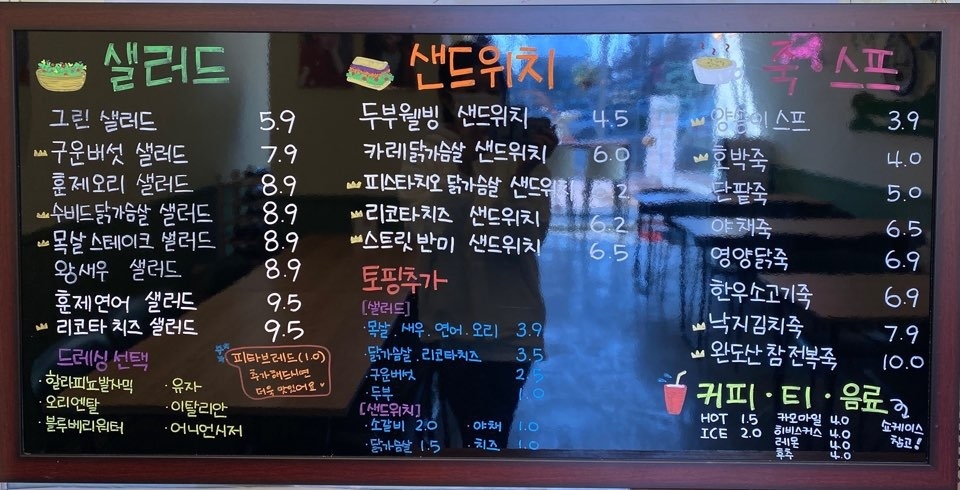 샐러드
그린 샐러드 5.9
구운버섯 샐러드 7.9
훈제오리 샐러드 8.9
수비드닭가슴살 샐러드 8.9
목살스테이크 샐러드 8.9
왕새우 샐러드 8.9
훈제연어 샐러드 9.5
리코타 치즈 샐러드 9.5
드레싱 선택
·할라피뇨발사믹 ·유자
·오리엔탈 ·이탈리안
·블루베리워터 ·어니언시저
피타브레드(1.0)
추가해드시면
더욱 맛있어요
샌드위치
두부웰빙 샌드위치 4.5
카레닭가슴살 샌드위치 6.0
피스타치오 닭가슴살 샌드위치
리코타치즈 샌드위치 6.2
스트릿 반미 샌드위치 6.5
토핑추가
[샐러드]
·목살.새우.연어.오리 3.9
·닭가슴살.리코타치즈 3.5
·구운버섯 2.5
·두부 1.0
[샌드위치]
·소갈비 2.0 ·야채 1.0
·닭가슴살 1.5 ·치즈 1.0
죽 스프
양송이스프 3.9
호박죽 4.0
단팥죽 5.0
야채죽 6.5
영양닭죽 6.9
한우소고기죽 6.9
낙지김치죽 7.9
완도산 참전복죽 10.0
커피·티·음료
HOT 1.5 카모마일 4.0
ICE 2.0 히비스커스 4.0
레몬 4.0
4.0
쇼케이스
참고!